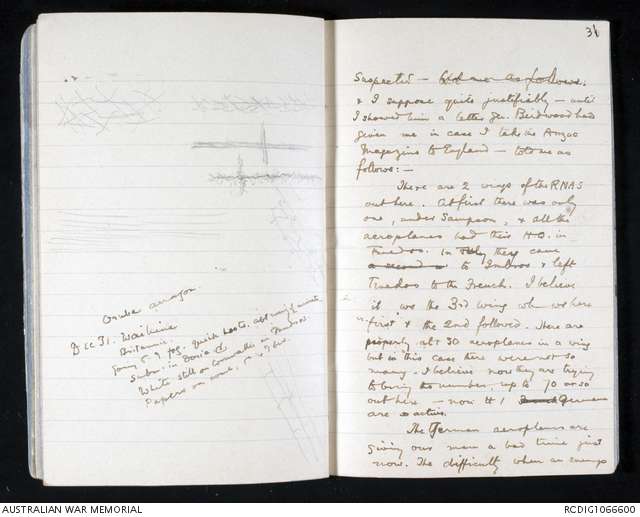 Dec 31. Waihine
Britannic.
31
suspected — told me as follows.
& I suppose quite justifiably — until
I showed him a letter Gen. Birdwood had
given me in case I take the Anzac
Magazine to England — told me as
follows: —
There are 2 wings of the RNAS
out here. At first there was only
one, under Sampson, & all the
aeroplanes had their H.Q. in
Tenedos. In July they came
to Imbros & left
Tenedos to the French. I believe
it was the 3rd wing wh was here
first & the 2nd followed. There are
properly abt 30 aeroplanes in a wing
but in this case there were not so
many. I believe now they are trying
to bring the number up to 70 or so
out here — now tt / German
are so active.
The German aeroplanes are
giving our men a bad time just
now. The difficulty when an enemy
AUSTRALIAN WAR MEMORIAL
RCDIG1066600